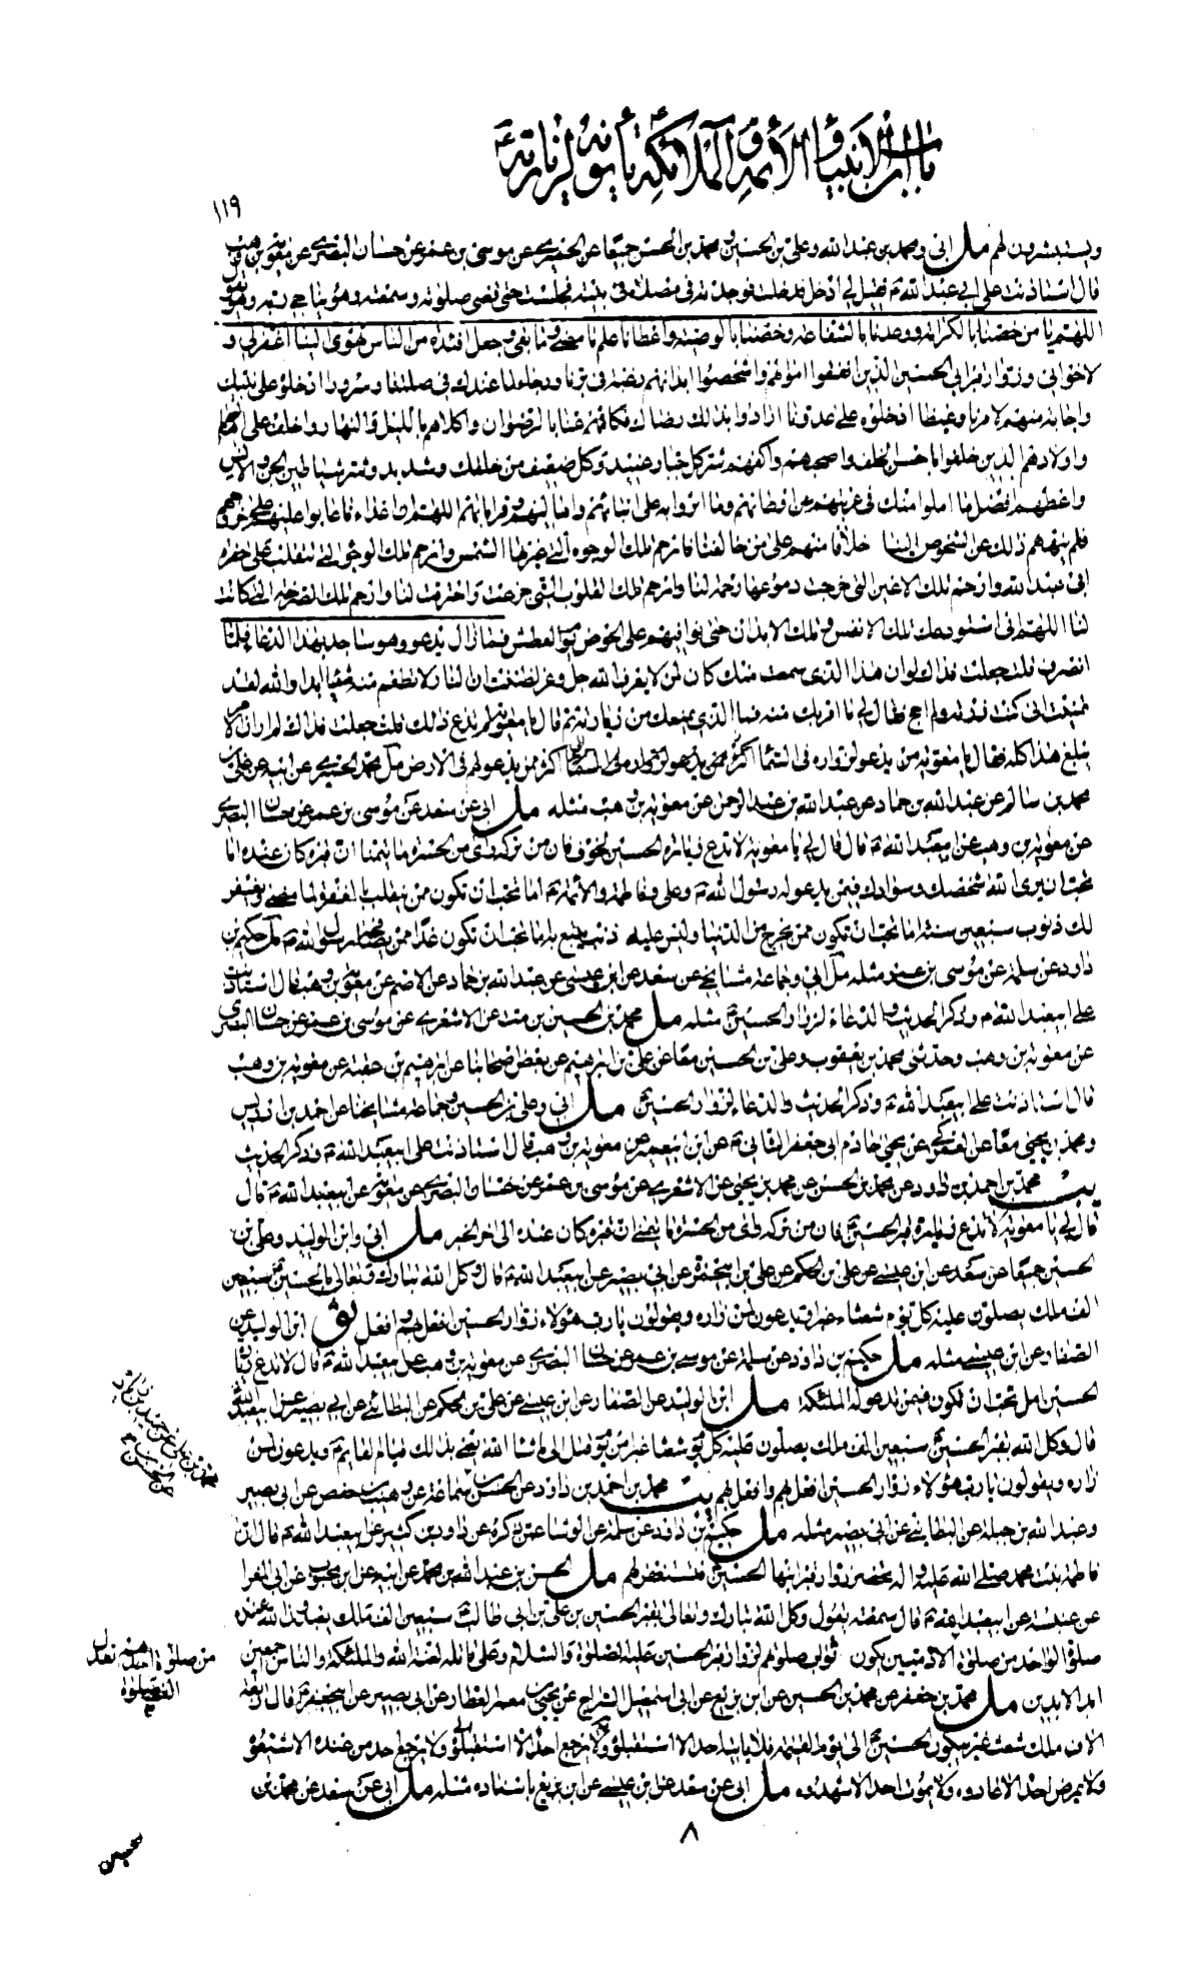 باب ان الانبياء و الأئمة و الملائكة يأتونه لزيارته
١١٩
ويستبشرون لهم مل ابى ومحمد بن عبدالله وعلى بن الحسين ومحمد بن الحسن جميعا عن الحميرى عن موسى بن عمر عن حسان البصرى عن معوية بن وهب
قال استاذنت على ابى عبدالله ع فقيل لى ادخل فدخلت فوجدته فى مصلاه فى بيته فجلست حتى قضى صلوته وسمعته وهو يناجى ربه وهو يقول
اللهم يا من خصنا بالكرامة ووعدنا بالشفاعة وخصنا بالوصية واعطانا علم ما مضى وما بقى وجعل افئدة من الناس تهوى الينا اغفر لى و
لاخوانى وزوار قبر ابى الحسين الذين انفقوا اموالهم واشخصوا ابدانهم رغبة فى برنا ورجاء لما عندك فى صلتنا وسرورا ادخلوه على نبيك
واجابة منهم لامرنا وغيظا ادخلوه على عدونا ارادوا بذلك رضاك فكافهم عنا بالرضوان واكلاهم بالليل والنهار واخلف على اهاليهم
واولادهم الذين خلفوا باحسن الخلف واصحبهم واكفهم شر كل جبار عنيد وكل ضعيف من خلقك وشديد وشر شياطين الجن والانس
واعطهم افضل ما املوا منك فى غربتهم عن اوطانهم وما اثرونا به على ابنائهم واهاليهم وقراباتهم اللهم ان اعداءنا عابوا عليهم خروجهم
فلم ينههم ذلك عن الشخوص الينا خلافا منهم على من خالفنا فارحم تلك الوجوه التى غيرها الشمس وارحم تلك الوجوه التى تتقلب على حفرة
ابى عبدالله وارحم تلك الاعين التى خرجت دموعها رحمة لنا وارحم تلك القلوب التى جزعت واحترقت لنا وارحم تلك الصرخة التى كانت
لنا اللهم انى استودعك تلك الانفس وتلك الابدان حتى توافيهم على الحوض يوم العطش فما زال يدعو وهو ساجد بهذا الدعاء فلما
انصرف قلت جعلت فداك لو ان هذا الذى سمعت منك كان لمن لا يعرف الله جل وعز لظننت ان النار لا تطعم منه شيئا ابدا والله لقد
تمنيت انى كنت زرته ولم احج فقال لى ما اقربك منه فما الذى يمنعك من زيارته ثم قال يا معوية لم تدع ذلك قلت جعلت فداك لم ار ان الامر
يبلغ هذا كله فقال يا معوية من يدعو لزواره فى السماء اكثر ممن يدعو لهم فى الارض مل محمد الحميرى عن ابيه عن على بن
محمد بن سالم عن عبدالله بن حماد عن عبدالله بن عبد الرحمن عن معوية بن وهب مثله مل ابى عن سعد عن موسى بن عمر عن حسان البصرى
عن معوية بن وهب عن ابيعبد الله ع قال قال لى يا معوية لا تدع زيارة الحسين لخوف فان من تركه راى من الحسرة ما يتمنى ان قبره كان عنده اما
تحب ان يرى الله شخصك وسوادك فيمن يدعو له رسول الله ص وعلى وفاطمة والائمة ع اما تحب ان تكون ممن ينقلب بالمغفرة لما مضى ويغفر
لك ذنوب سبعين سنة اما تحب ان تكون ممن يخرج من الدنيا وليس عليه ذنب يتبع به اما تحب ان تكون غدا ممن يصافحه رسول الله ص مل حكيم بن
داود عن سلمة عن موسى بن عمر مثله مل ابى وجماعة مشايخى عن سعد عن ابن عيسى عن عبدالله بن حماد عن الاصم عن معوية بن وهب قال استاذنت
على ابيعبد الله ع وذكر الحديث والدعاء لزوار الحسين ع مثله مل محمد بن الحسين بن مت عن الاشعرى عن موسى بن عمر عن حسان البصرى
عن معوية بن وهب وحدثنى محمد بن يعقوب وعلى بن الحسين معا عن على بن ابرهيم عن بعض اصحابنا عن ابرهيم بن عقبة عن معوية بن وهب
قال استاذنت على ابيعبد الله ع وذكر الحديث والدعاء لزوار الحسين ع مل ابى وعلى بن الحسين وجماعة مشايخنا عن احمد بن ادريس
ومحمد بن يحيى معا عن العمركى عن يحيى خادم ابى جعفر الثانى ع عن ابن ابيعمير عن معوية بن وهب قال استاذنت على ابيعبد الله ع وذكر الحديث
يب محمد بن احمد بن داود عن محمد بن الحسن عن محمد بن يحيى عن الاشعرى عن موسى بن عمر عن حسان البصرى عن معوية عن ابيعبد الله ع قال
قال لى يا معوية لا تدع زيارة قبر الحسين ع فان من تركه راى من الحسرة ما يتمنى ان قبره كان عنده الى اخر الخبر مل ابى وابن الوليد وعلى بن
الحسين جميعا عن سعد عن ابن عيسى عن على بن الحكم عن على بن ابيحمزة عن ابى بصير عن ابيعبد الله ع قال وكل الله تبارك وتعالى بالحسين ع سبعين
الف ملك يصلون عليه كل يوم شعثاء غبرا ويدعون لمن زاره ويقولون يا رب هؤلاء زوار الحسين افعل بهم وافعل ثو ابن الوليد عن
الصفار عن ابن عيسى مثله مل حكيم بن داود عن سلمة عن موسى بن عمر عن حسان البصرى عن معوية بن وهب عن ابيعبد الله ع قال لا تدع زيارة
الحسين اما تحب ان تكون فيمن تدعو له الملئكة مل ابن الوليد عن الصفار عن ابن عيسى عن على بن الحكم عن البطائنى عن ابى بصير عن ابيعبد الله ع
قال وكل الله بقبر الحسين ع سبعين الف ملك يصلون عليه كل يوم شعثا غبرا من يوم قتل الى ما شاء الله يعنى بذلك قيام القايم ع ويدعون لمن
زاره ويقولون يا رب هؤلاء زوار الحسين افعل بهم وافعل بهم يب محمد بن احمد بن داود عن الحسن عن وهيب بن حفص عن ابى بصير
وعبد الله بن جبلة عن البطاينى عن ابى بصير مثله مل حكيم بن داود عن سلمة عن الوشا عمن ذكره عن داود بن كثير عن ابيعبد الله ع قال ان
فاطمة بنت محمد صلى الله عليه واله تحضر زوار قبر ابنها الحسين ع فتستغفر لهم مل الحسن بن عبدالله بن محمد عن ابيه عن ابن محبوب عن ابى المغرا
عن عنبسة عن ابيعبد الله ع قال سمعته يقول وكل الله تبارك وتعالى بقبر الحسين بن على بن ابى طالب سبعين الف ملك يعبدون الله عنده
صلوة الواحد من صلوة الادميين يكون ثواب صلوتهم لزوار قبر الحسين عليه الصلوة والسلام وعلى قاتله لعنة الله والملئكة والناس اجمعين
ابد الابدين مل محمد بن جعفر عن محمد بن الحسين عن ابن بزيع عن ابى اسمعيل السراج عن يحيى بن معمر العطار عن ابى بصير عن ابيجعفر ع قال اربعة
الاف ملك شعث غبر يبكون الحسين ع الى يوم القيمة فلا ياتيه احد الا استقبلوه ولا يرجع احد الا ولا يرجع احد من عنده الا شيعوه
ولا يمرض احد الا عادوه ولا يموت احد الا شهدوه مل ابى عن سعد عن ابن عيسى عن ابن بزيع باسناده مثله مل ابى عن سعد عن محمد بن
من صلوة احدهم تعدل
الف صلوة
٨
الحسين